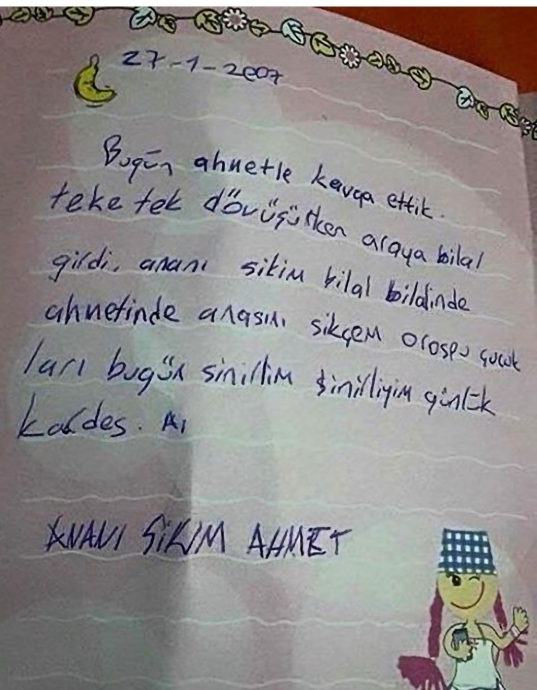 27-1-2007
Bugün ahmetle kavga ettik.
teke tek dövüşürken araya bilal
girdi. ananı sikim bilal bilalinde
ahmetinde anasını sikçem orospu çocuk
ları bugün sinirlim sinirliyim günlük
kardes. Aı
ANANI SİKİM AHMET